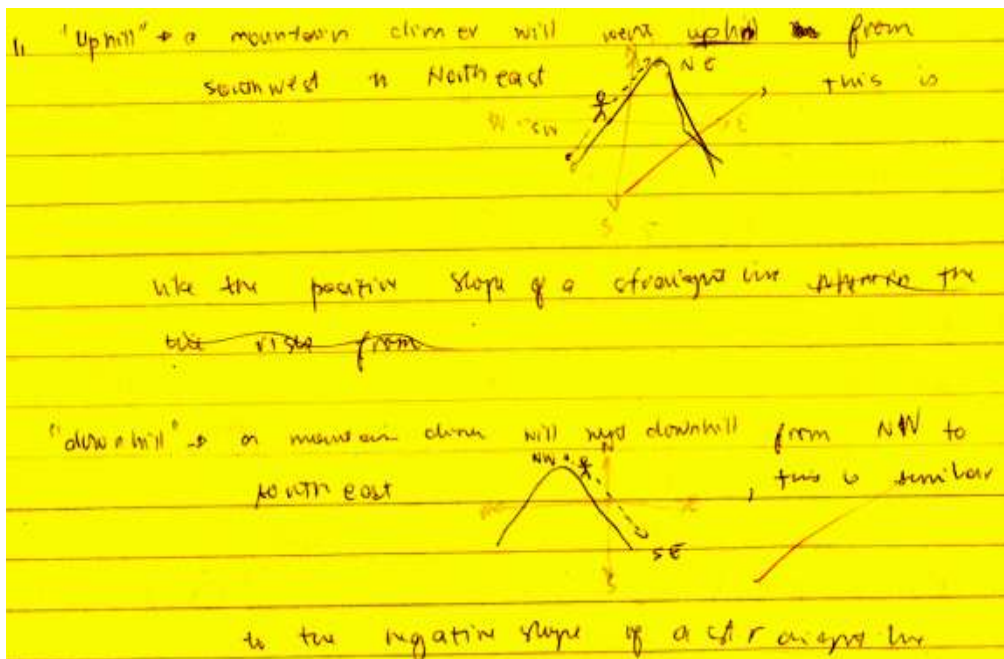 1, "Uphill" → a mountain climer will went uphill from
southwest to North east , this is
N NE
W SW E
S
like the positive slope of a straight line the
the rists from
"downhill" → a mountain climer will downhill from NW to
south east , this is similar
NW N
SE
S
to the negative slope of a straight line